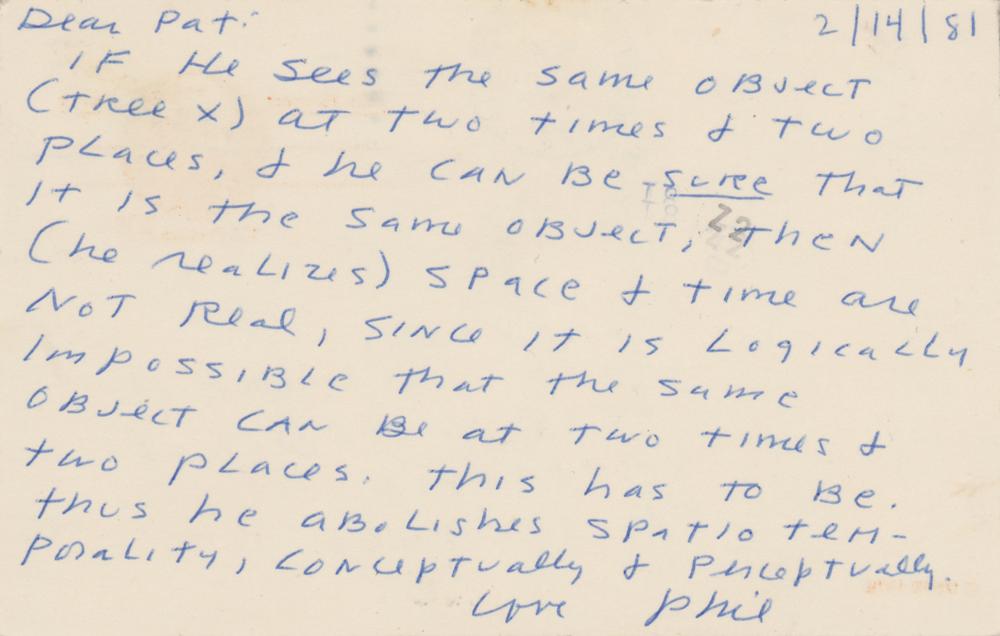 Dear Pat:
2/14/81
If He sees the same object
(tree x) at two times & two
places, & he can be sure that
it is the same object, then
22
(he realizes) space & time are
not real, since it is logically
impossible that the same
object can be at two times &
two places. this has to be.
thus he abolishes spatio tem-
porality, conceptually & perceptually.
Love Phil